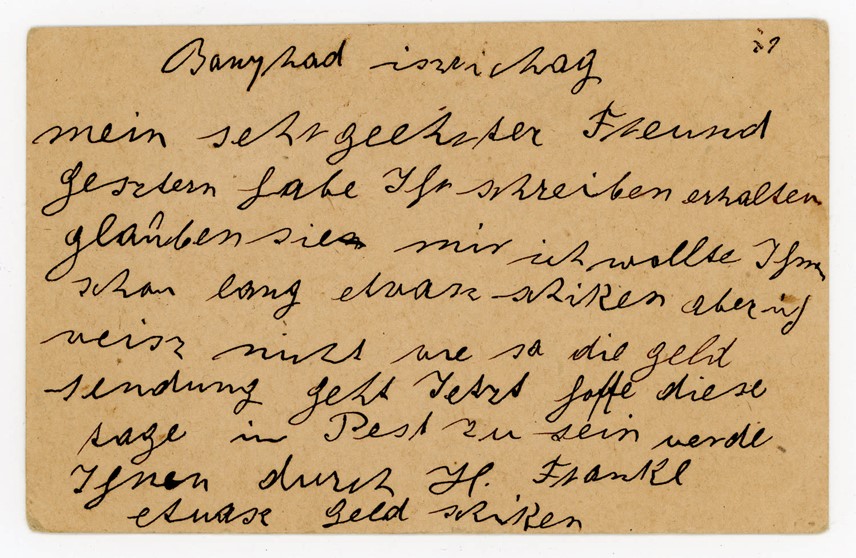 Bonyhad
mein sehr geehrter Freund
Gesztern habe Ihr schreiben erhalten
glauben sie mir ich wollte Ihnen
schon lang etwasz schiken aber ich
veisz nicht vie so die geld
sendung geht Jetzt hoffe diese
tage in Pest zu sein verde
Ihnen durch H. Frankl
etvasz Geld schiken